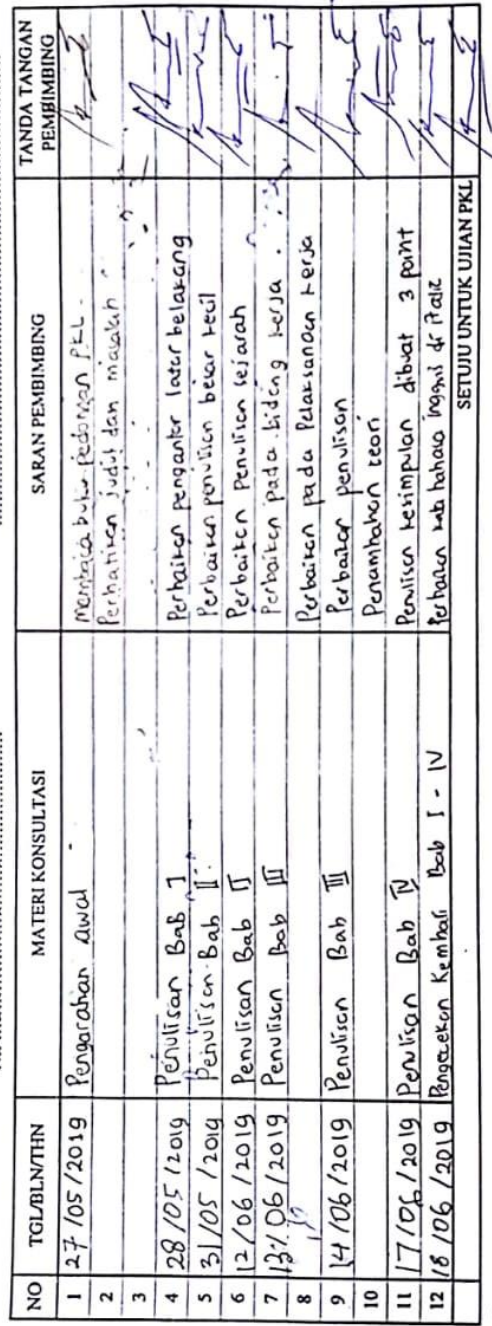 NO TGL/BLN/THN MATERI KONSULTASI SARAN PEMBIMBING TANDA TANGAN PEMBIMBING
1 27/05/2019 Pengarahan awal membaca buku pedoman PKL
2 Perhatikan judul dan masalah
3
4 28/05/2019 Penulisan Bab I Perbaikan pengantar latar belakang
5 31/05/2019 Penulisan Bab II Perbaikan penulisan besar kecil
6 12/06/2019 Penulisan Bab II Perbaikan Penulisan sejarah
7 13/06/2019 Penulisan Bab III Perbaikan pada bidang kerja
8 Perbaikan pada Pelaksanaan kerja
9 14/06/2019 Penulisan Bab III Perbaikan penulisan
10 Penambahan teori
11 17/06/2019 Penulisan Bab IV Penulisan kesimpulan dibuat 3 point
12 18/06/2019 Pengecekan Kembali Bab I - IV Perbaikan kata bahasa inggris di italic
SETUJU UNTUK UJIAN PKL